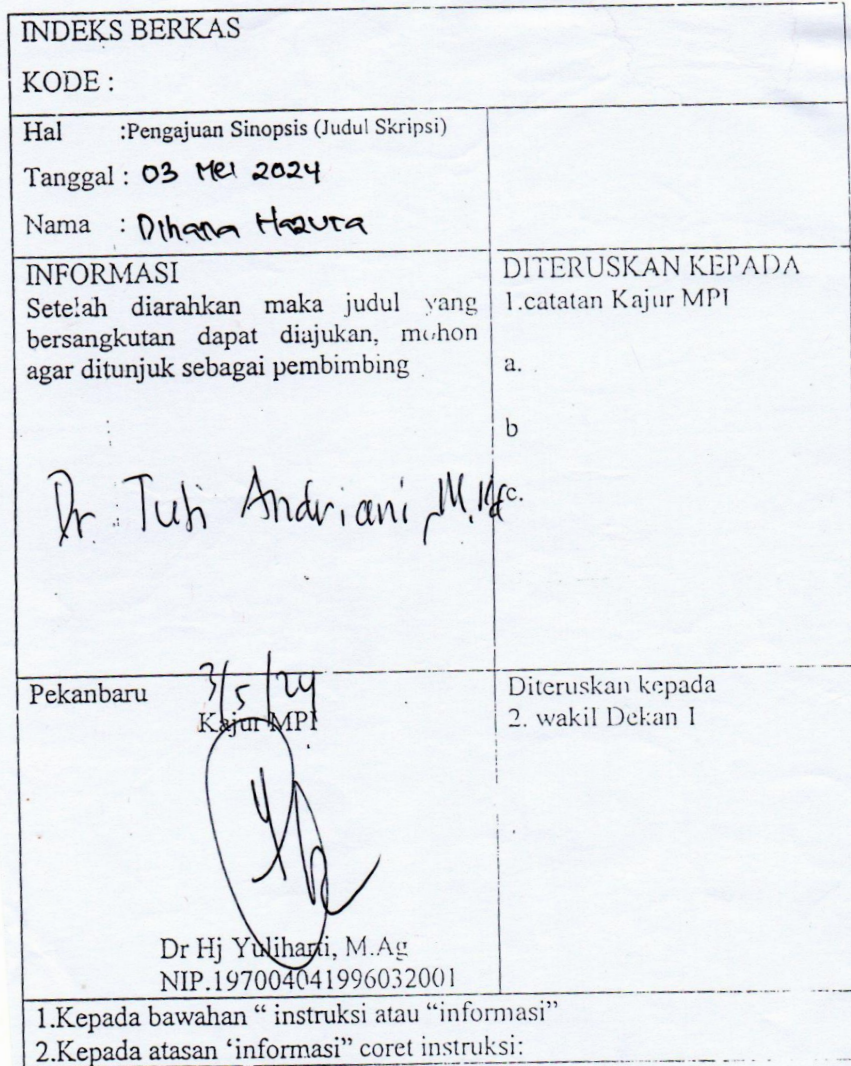 INDEKS BERKAS
KODE :
Hal :Pengajuan Sinopsis (Judul Skripsi)
Tanggal : 03 Mei 2024
Nama : Dihana Hazura
INFORMASI
Setelah diarahkan maka judul yang
bersangkutan dapat diajukan, mohon
agar ditunjuk sebagai pembimbing
Dr. Tuti Andriani, M.Pd
DITERUSKAN KEPADA
1.catatan Kajur MPI
a.
b
c.
Pekanbaru 3/5/24
Kajur MPI
Dr Hj Yuliharti, M.Ag
NIP.197004041996032001
Diteruskan kepada
2. wakil Dekan I
1.Kepada bawahan “ instruksi atau “informasi”
2.Kepada atasan ‘informasi” coret instruksi: